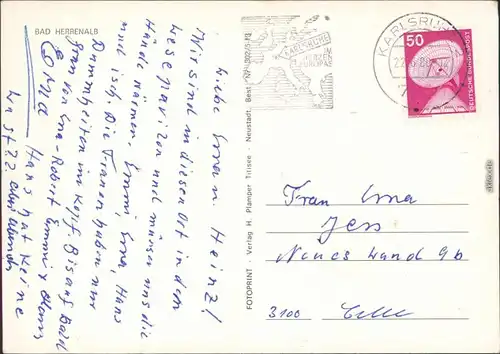 BAD HERRENALB
Liebe Erna u Heinz!
Wir sind in diesen Ort in dem
Lesepavillon und müssen uns die
Hände wärmen. Emmi, Erna, Hans
und ich. Die Frauen haben nur
Dummheiten im Kopf. Bis auf Bald
Gruß von Erna - Robert Emmi + Hans
Oma
Hans hat keine
Lust??
FOTOPRINT · Verlag H. Plamper Titisee · Neustadt. Best.-Nr.
KARLSRUHE
KARLSRUHE
50
DEUTSCHE BUNDESPOST
Frau Erna
Jess
Neues Land 9b
3100 Celle